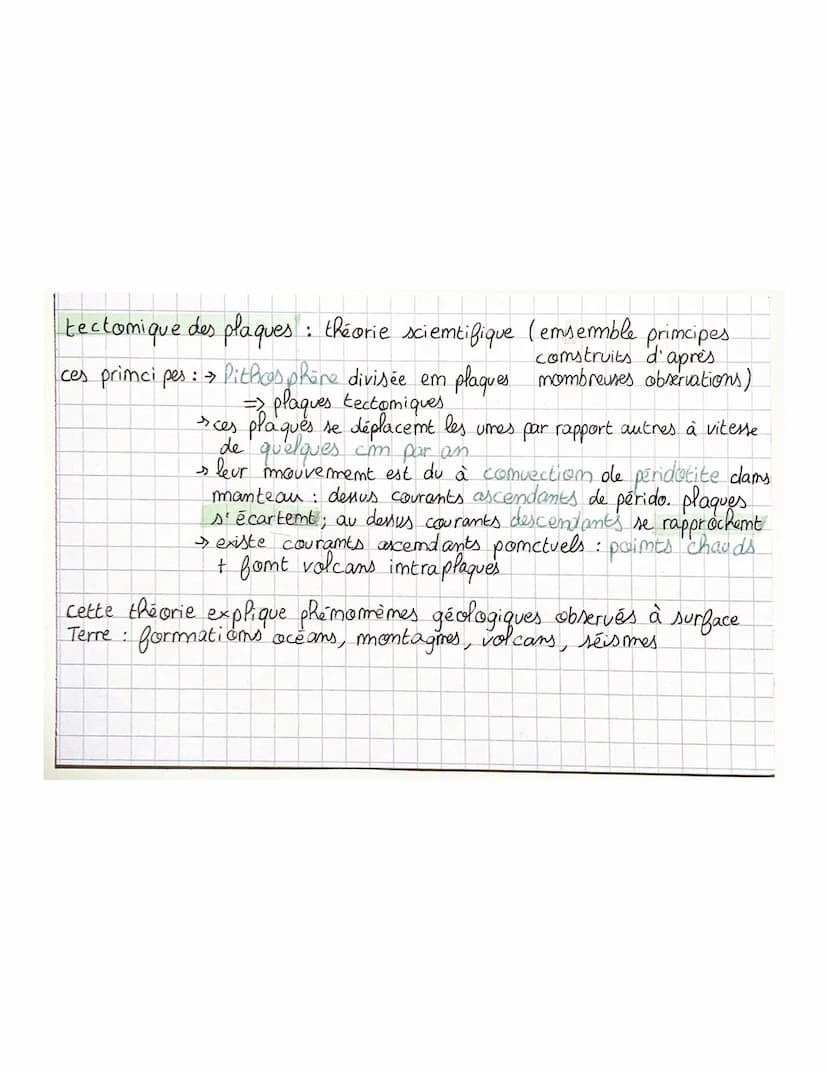 tectonique des plaques : théorie scientifique (ensemble principes
construits d'après
ces principes : → lithosphère divisée en plaques nombreuses observations)
=> plaques tectoniques
→ ces plaques se déplacent les unes par rapport autres à vitesse
de quelques cm par an
→ leur mouvement est du à convection de péridotite dans
manteau : dessus courants ascendants de périido. plaques
s'écartent ; au dessus courants descendants se rapprochent
→ existe courants ascendants ponctuels : points chauds
+ font volcans intraplaques
cette théorie explique phénomènes géologiques observés à surface
Terre : formations océans, montagnes, volcans, séismes